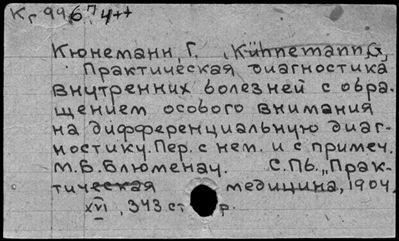 Кг 9967 4++
Кюнеманн, Г. (Kühnemann, G.)
Практическая диагностика
внутренних болезней с обра-
щением особого внимания
на дифференциальную диаг-
ностику. Пер. с нем. и с примеч.
М.Б. Блюменау. С.Пб. „Прак-
тическая медицина, 1904.
XVI, 343 ст р.